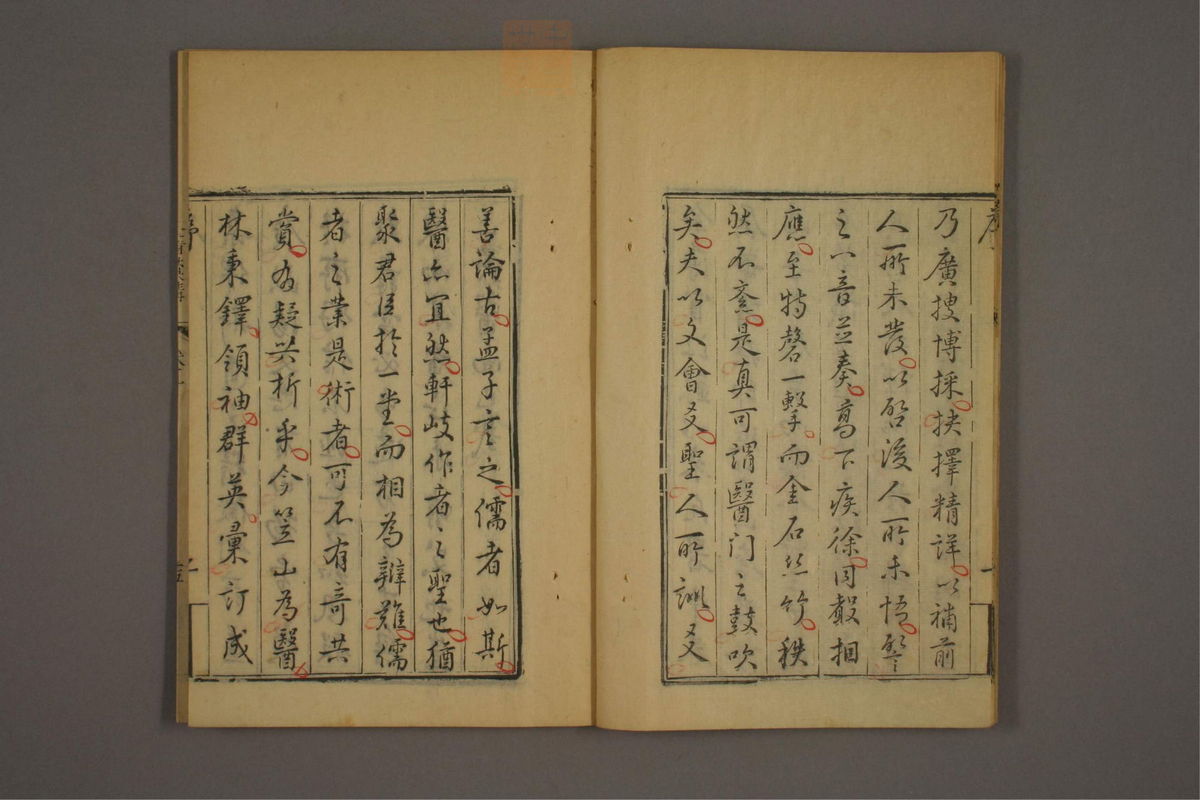 乃廣搜博採抉擇精詳以補前
人所未發以啓後人所未悟譬
之八音並奏高下疾徐同聲相
應至特磬一擊而金石絲竹秩
然不紊是真可謂醫门之鼓吹
矣夫以文會友聖人所訓友
善論古孟子言之儒者如斯
醫亦宜然軒岐作者之聖也猶
聚君臣於一堂而相為辨難儒
者之業是術者可不有奇共
賞有疑共析乎今笠山為醫
林秉鐸領袖群英彙訂成
序